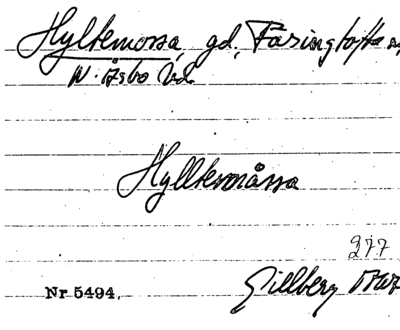 Hyltemossa, gd, Färingtofta
N. Åsbo hd.
Hylltemåssa
277
Nr 5494. Gillberg